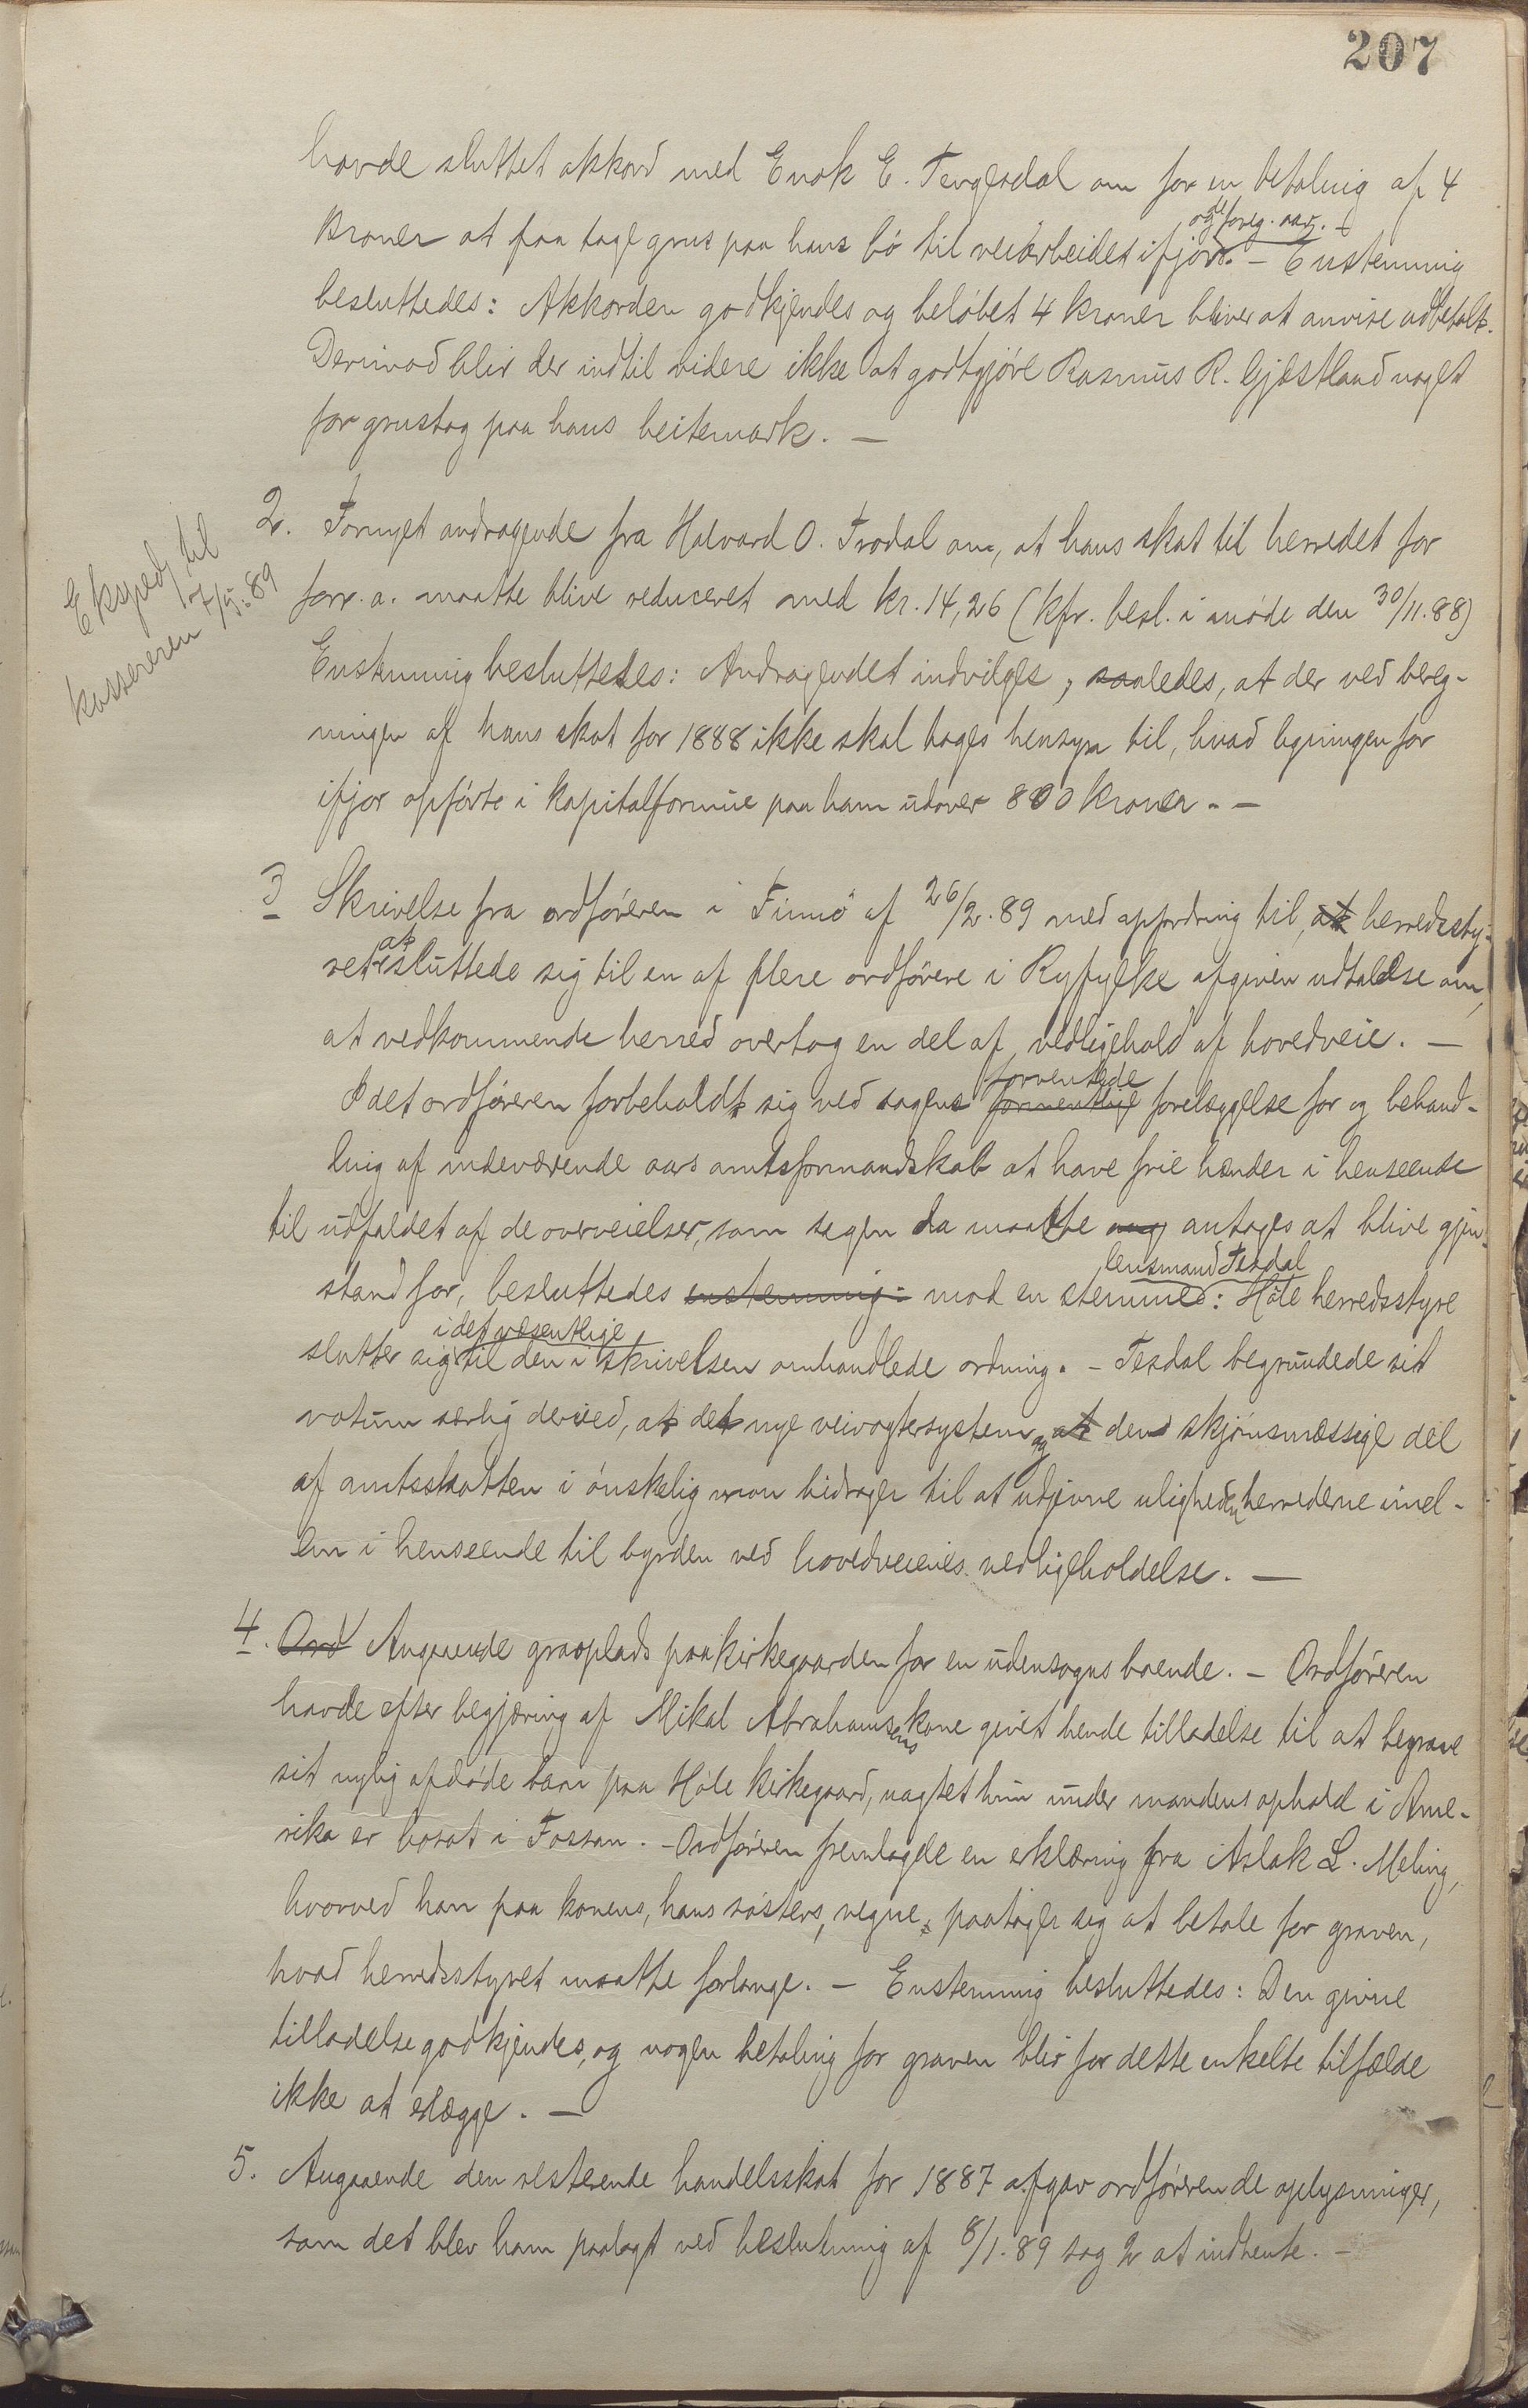 207
havde sluttet akkord med Enok E. Tengesdal om for en betaling af 4
kroner at faa tage grus paa hans bø til veiarbeidet ifjor og de foreg. aar. – Enstemmig
besluttedes: Akkorden godkjendes og beløbet 4 kroner bliver at anvise udbetalt.
Derimod blir der indtil videre ikke at godtgjøre Rasmus R. Gjæstland noget
for grustag paa hans beitemark. –
Eksped. til
kassereren 7/5. 89
2. Fornyet andragende fra Halvard O. Frodal om, at hans skat til herredet for
forr. a. maatte blive reduceret med kr. 14,26 (kfr. besl. i møde den 30/11. 88)
Enstemmig besluttedes: Andragendet indvilges, saaledes, at der ved bereg-
ningen af hans skat for 1888 ikke skal tages hensyn til, hvad ligningen for
ifjor opførte i kapitalformue paa ham udover 800 kroner. –
3 Skrivelse fra ordføreren i Finnø af 26/2. 89 med opfordring til, at herredssty-
ret at sluttede sig til en af flere ordførere i Ryfylke afgiven udtalelse om,
at vedkommende herred overtog en del af vedligehold af hovedveie. –
Idet ordføreren forbeholdt sig ved sagens formentlige forventede forelæggelse for og behand-
ling af indeværende aars amtsformandskab at have frie hænder i henseende
til udfaldet af de overveielser, som sagen da maatte antages at blive gjen-
stand for, besluttedes enstemmig: mod en stemme lensmand Tesdal: Høle herredsstyre
slutter sig i det væsentlige til den i skrivelsen omhandlede ordning. – Tesdal begrundede sit
votum særlig derved, at det nye veivogtersystem og at den skjønsmæssige del
af amtsskatten i ønskelig mon bidrager til at udjevne uligheden herrederne imel-
lem i henseende til byrden ved hovedveienes vedligeholdelse. –
4. Ord Angaaende gravplads paa kirkegaarden for en udensogns boende. – Ordføreren
havde efter begjæring af Mikal Abrahamsens kone givet hende tilladelse til at begrave
sit nylig afdøde barn paa Høle kirkegaard, uagtet hun under mandens ophold i Ame-
rika er bosat i Fossan. – Ordføreren fremlagde en erklæring fra Aslak L. Meling,
hvorved han paa konens, hans søsters, vegne paatager sig at betale for graven,
hvad herredsstyret maatte forlange. – Enstemmig besluttedes: Den givne
tilladelse godkjendes, og nogen betaling for graven blir for dette enkelte tilfælde
ikke at erlægge. –
5. Angaaende den resterende handelsskat for 1887 afgav ordføreren de oplysninger,
som det blev ham paalagt ved beslutning af 8/1. 89 sag 2 at indhente. –